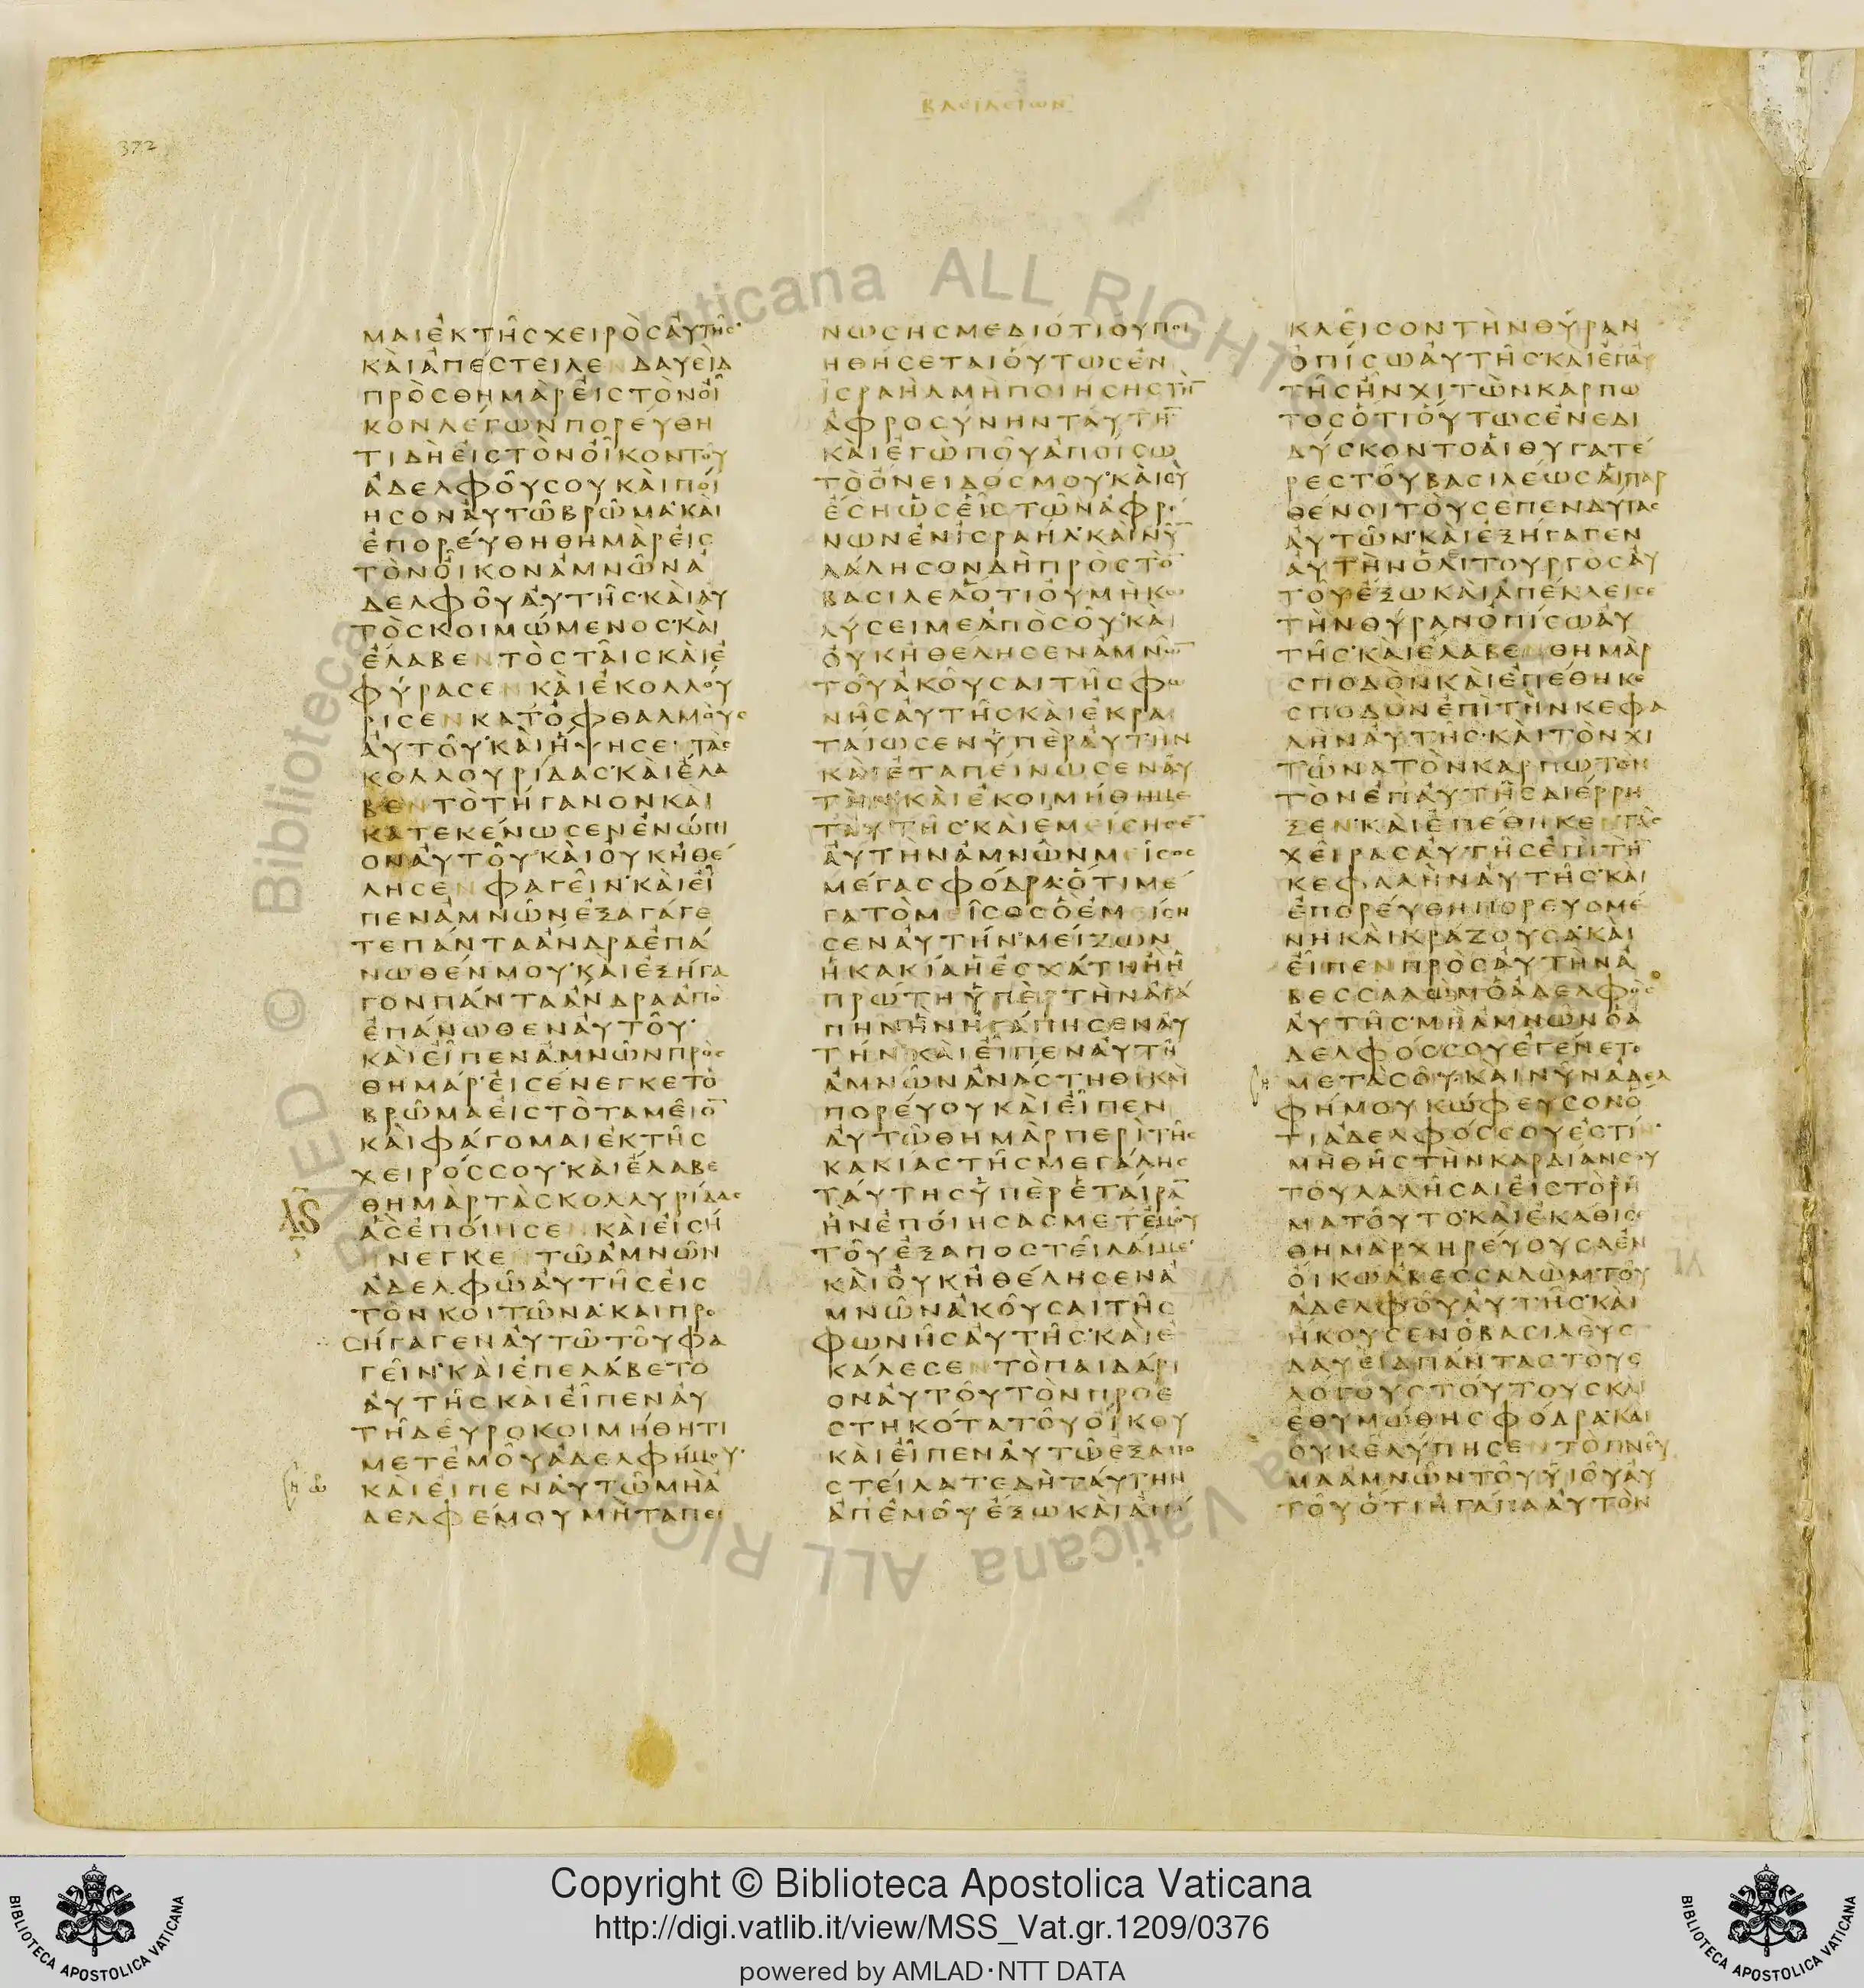 ΒΑΣΙΛΕΙΩΝ
372
ΜΑΙΕΚΤΗΣΧΕΙΡΟΣΑΥΤΗΣ
ΚΑΙΑΠΕΣΤΕΙΛΕΝΔΑΥΕΙΔ
ΠΡΟΣΘΗΜΑΡΕΙΣΤΟΝΟΙ
ΚΟΝΛΕΓΩΝΠΟΡΕΥΘΗ
ΤΙΔΗΕΙΣΤΟΝΟΙΚΟΝΤΟΥ
ΑΔΕΛΦΟΥΣΟΥΚΑΙΠΟΙ
ΗΣΟΝΑΥΤΩΒΡΩΜΑΚΑΙ
ΕΠΟΡΕΥΘΗΘΗΜΑΡΕΙΣ
ΤΟΝΟΙΚΟΝΑΜΝΩΝΑ
ΔΕΛΦΟΥΑΥΤΗΣΚΑΙΑΥ
ΤΟΣΚΟΙΜΩΜΕΝΟΣΚΑΙ
ΕΛΑΒΕΝΤΟΣΤΑΙΣΚΑΙΕ
ΦΥΡΑΣΕΝΚΑΙΕΚΟΛΛΟΥ
ΡΙΣΕΝΚΑΤΟΦΘΑΛΜΟΥΣ
ΑΥΤΟΥΚΑΙΗΨΗΣΕΝΤΑΣ
ΚΟΛΛΟΥΡΙΔΑΣΚΑΙΕΛΑ
ΒΕΝΤΟΤΗΓΑΝΟΝΚΑΙ
ΚΑΤΕΚΕΝΩΣΕΝΕΝΩΠΙ
ΟΝΑΥΤΟΥΚΑΙΟΥΚΗΘΕ
ΛΗΣΕΝΦΑΓΕΙΝΚΑΙΕΙ
ΠΕΝΑΜΝΩΝΕΞΑΓΑΓΕ
ΤΕΠΑΝΤΑΑΝΔΡΑΕΠΑ
ΝΩΘΕΝΜΟΥΚΑΙΕΞΗΓΑ
ΓΟΝΠΑΝΤΑΑΝΔΡΑΑΠΟ
ΕΠΑΝΩΘΕΝΑΥΤΟΥ
ΚΑΙΕΙΠΕΝΑΜΝΩΝΠΡΟΣ
ΘΗΜΑΡΕΙΣΕΝΕΓΚΕΤΟ
ΒΡΩΜΑΕΙΣΤΟΤΑΜΕΙΟ̅
ΚΑΙΦΑΓΟΜΑΙΕΚΤΗΣ
ΧΕΙΡΟΣΣΟΥΚΑΙΕΛΑΒΕ
ΘΗΜΑΡΤΑΣΚΟΛΛΥΡΙΔΑΣ
ΑΣΕΠΟΙΗΣΕΝΚΑΙΕΙΣΗ
ΝΕΓΚΕΝΤΩΑΜΝΩΝ
ΑΔΕΛΦΩΑΥΤΗΣΕΙΣ
ΤΟΝΚΟΙΤΩΝΑΚΑΙΠΡΟ
ΣΗΓΑΓΕΝΑΥΤΩΤΟΥΦΑ
ΓΕΙΝΚΑΙΕΠΕΛΑΒΕΤΟ
ΑΥΤΗΣΚΑΙΕΙΠΕΝΑΥ
ΤΗΔΕΥΡΟΚΟΙΜΗΘΗΤΙ
ΜΕΤΕΜΟΥΑΔΕΛΦΗΜΟΥ
ΚΑΙΕΙΠΕΝΑΥΤΩΜΗΑ
ΔΕΛΦΕΜΟΥΜΗΤΑΠΕΙ
ΝΩΣΗΣΜΕΔΙΟΤΙΟΥΠΟΙ
ΗΘΗΣΕΤΑΙΟΥΤΩΣΕΝ
ΙΣΡΑΗΛΜΗΠΟΙΗΣΗΣΤΗ̅
ΑΦΡΟΣΥΝΗΝΤΑΥΤΗ̅
ΚΑΙΕΓΩΠΟΥΑΠΟΙΣΩ
ΤΟΟΝΕΙΔΟΣΜΟΥΚΑΙΣΥ
ΕΣΗΩΣΕΙΣΤΩΝΑΦΡΟ
ΝΩΝΕΝΙΣΡΑΗΛΚΑΙΝΥ̅
ΛΑΛΗΣΟΝΔΗΠΡΟΣΤΟ̅
ΒΑΣΙΛΕΑΟΤΙΟΥΜΗΚΩ
ΛΥΣΕΙΜΕΑΠΟΣΟΥΚΑΙ
ΟΥΚΗΘΕΛΗΣΕΝΑΜΝΩ̅
ΤΟΥΑΚΟΥΣΑΙΤΗΣΦΩ
ΝΗΣΑΥΤΗΣΚΑΙΕΚΡΑ
ΤΑΙΩΣΕΝΥΠΕΡΑΥΤΗΝ
ΚΑΙΕΤΑΠΕΙΝΩΣΕΝΑΥ
ΤΗΝΚΑΙΕΚΟΙΜΗΘΗΜΕ
ΤΑΥΤΗΣΚΑΙΕΜΕΙΣΗΣΕ̅
ΑΥΤΗΝΑΜΝΩΝΜΕΙΣΟΣ
ΜΕΓΑΣΦΟΔΡΑΟΤΙΜΕ
ΓΑΤΟΜΕΙΣΟΣΟΕΜΕΙΣΗ
ΣΕΝΑΥΤΗΝΜΕΙΖΩΝ
ΗΚΑΚΙΑΗΕΣΧΑΤΗΗΗ
ΠΡΩΤΗΥΠΕΡΤΗΝΑΓΑ
ΠΗΝΗΝΗΓΑΠΗΣΕΝΑΥ
ΤΗΝΚΑΙΕΙΠΕΝΑΥΤΗ
ΑΜΝΩΝΑΝΑΣΤΗΘΙΚΑΙ
ΠΟΡΕΥΟΥΚΑΙΕΙΠΕΝ
ΑΥΤΩΘΗΜΑΡΠΕΡΙΤΗΣ
ΚΑΚΙΑΣΤΗΣΜΕΓΑΛΗΣ
ΤΑΥΤΗΣΥΠΕΡΕΤΑΙΡΑ̅
ΗΝΕΠΟΙΗΣΑΣΜΕΤΕΜΟΥ
ΤΟΥΕΞΑΠΟΣΤΕΙΛΑΙΜΕ
ΚΑΙΟΥΚΗΘΕΛΗΣΕΝΑ
ΜΝΩΝΑΚΟΥΣΑΙΤΗΣ
ΦΩΝΗΣΑΥΤΗΣΚΑΙΕ
ΚΑΛΕΣΕΝΤΟΠΑΙΔΑΡΙ
ΟΝΑΥΤΟΥΤΟΝΠΡΟΕ
ΣΤΗΚΟΤΑΤΟΥΟΙΚΟΥ
ΚΑΙΕΙΠΕΝΑΥΤΩΕΞΑΠΟ
ΣΤΕΙΛΑΤΕΔΗΤΑΥΤΗΝ
ΑΠΕΜΟΥΕΞΩΚΑΙΑΠΟ
ΚΛΕΙΣΟΝΤΗΝΘΥΡΑΝ
ΟΠΙΣΩΑΥΤΗΣΚΑΙΕΠΑΥ
ΤΗΣΗΝΧΙΤΩΝΚΑΡΠΩ
ΤΟΣΟΤΙΟΥΤΩΣΕΝΕΔΙ
ΔΥΣΚΟΝΤΟΑΙΘΥΓΑΤΕ
ΡΕΣΤΟΥΒΑΣΙΛΕΩΣΑΙΠΑΡ
ΘΕΝΟΙΤΟΥΣΕΠΕΝΔΥΤΑΣ
ΑΥΤΩΝΚΑΙΕΞΗΓΑΓΕΝ
ΑΥΤΗΝΟΛΙΤΟΥΡΓΟΣΑΥ
ΤΟΥΕΞΩΚΑΙΑΠΕΚΛΕΙΣΕ
ΤΗΝΘΥΡΑΝΟΠΙΣΩΑΥ
ΤΗΣΚΑΙΕΛΑΒΕΝΘΗΜΑΡ
ΣΠΟΔΟΝΚΑΙΕΠΕΘΗΚΕ
ΣΠΟΔΟΝΕΠΙΤΗΝΚΕΦΑ
ΛΗΝΑΥΤΗΣΚΑΙΤΟΝΧΙ
ΤΩΝΑΤΟΝΚΑΡΠΩΤΟΝ
ΤΟΝΕΠΑΥΤΗΣΔΙΕΡΡΗ
ΞΕΝΚΑΙΕΠΕΘΗΚΕΝΤΑΣ
ΧΕΙΡΑΣΑΥΤΗΣΕΠΙΤΗ̅
ΚΕΦΑΛΗΝΑΥΤΗΣΚΑΙ
ΕΠΟΡΕΥΘΗΠΟΡΕΥΟΜΕ
ΝΗΚΑΙΚΡΑΖΟΥΣΑΚΑΙ
ΕΙΠΕΝΠΡΟΣΑΥΤΗΝΑ
ΒΕΣΣΑΛΩΜΟΑΔΕΛΦΟΣ
ΑΥΤΗΣΜΗΑΜΝΩΝΟΑ
ΔΕΛΦΟΣΣΟΥΕΓΕΝΕΤΟ
ΜΕΤΑΣΟΥΚΑΙΝΥΝΑΔΕΛ
ΦΗΜΟΥΚΩΦΕΥΣΟΝΟ
ΤΙΑΔΕΛΦΟΣΣΟΥΕΣΤΙΝ
ΜΗΘΗΣΤΗΝΚΑΡΔΙΑΝΣΟΥ
ΤΟΥΛΑΛΗΣΑΙΕΙΣΤΟΡΗ
ΜΑΤΟΥΤΟΚΑΙΕΚΑΘΙΣΕ
ΘΗΜΑΡΧΗΡΕΥΟΥΣΑΕΝ
ΟΙΚΩΑΒΕΣΣΑΛΩΜΤΟΥ
ΑΔΕΛΦΟΥΑΥΤΗΣΚΑΙ
ΗΚΟΥΣΕΝΟΒΑΣΙΛΕΥΣ
ΔΑΥΕΙΔΠΑΝΤΑΣΤΟΥΣ
ΛΟΓΟΥΣΤΟΥΤΟΥΣΚΑΙ
ΕΘΥΜΩΘΗΣΦΟΔΡΑΚΑΙ
ΟΥΚΕΛΥΠΗΣΕΝΤΟΠΝΕΥ
ΜΑΑΜΝΩΝΤΟΥΥΙΟΥΑΥ
ΤΟΥΟΤΙΗΓΑΠΑΑΥΤΟΝ
Copyright © Biblioteca Apostolica Vaticana
http://digi.vatlib.it/view/MSS_Vat.gr.1209/0376
powered by AMLAD·NTT DATA
BIBLIOTECA APOSTOLICA VATICANA
BIBLIOTECA APOSTOLICA VATICANA